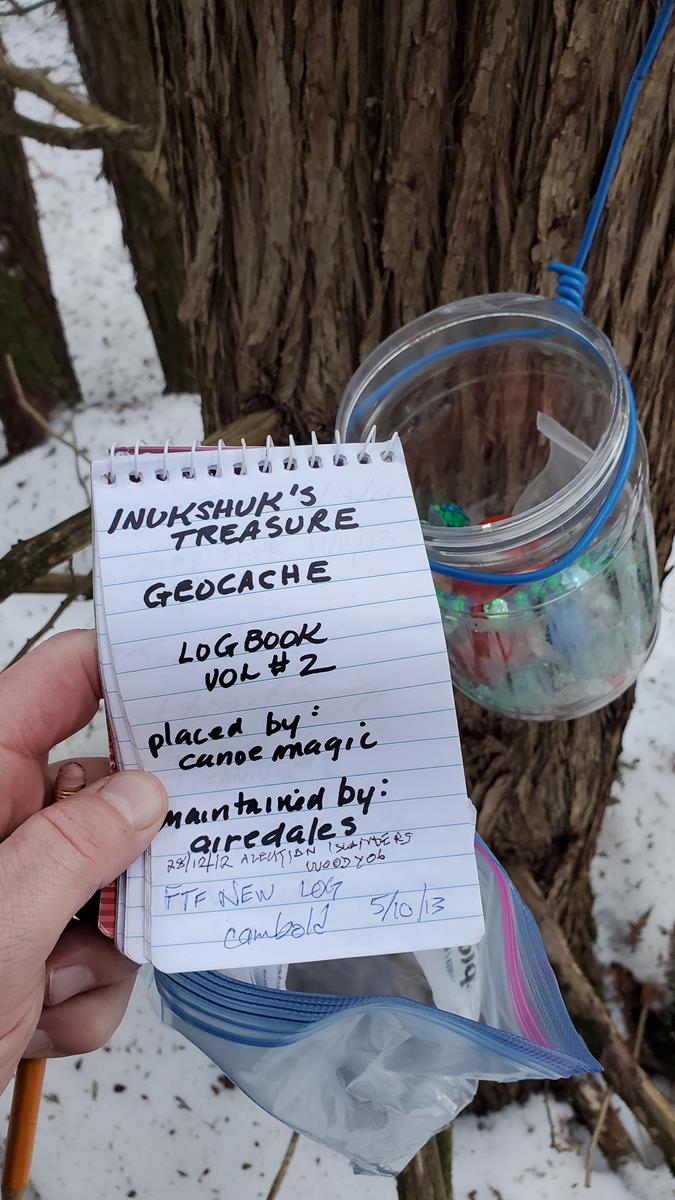 INUKSHUK'S
TREASURE
GEOCACHE
LOGBOOK
VOL # 2
placed by:
canoe magic
maintained by:
airedales
28/12/12 ALEUTIAN ISLANDERS
WOODY06
FTF NEW LOG
cambold 5/10/13